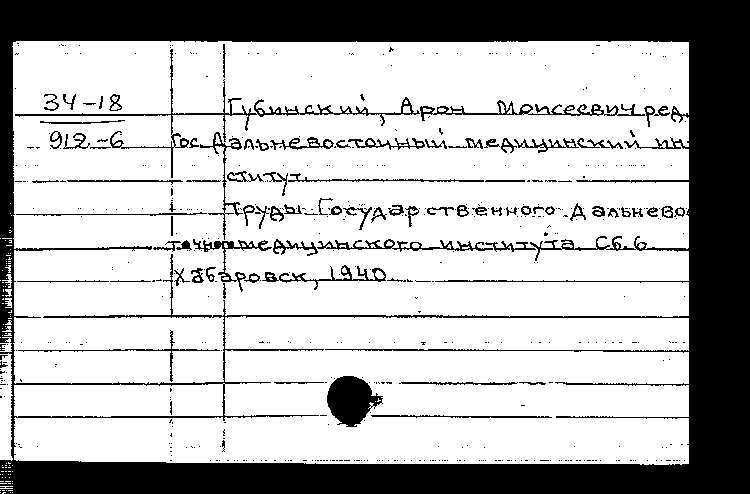 34-18
Губинский, Арон Моисеевич ред.
912-6
Гос. Дальневосточный медицинский ин-
ститут.
Труды Государственного Дальнево
точного медицинского института. Сб. 6
Хабаровск, 1940.